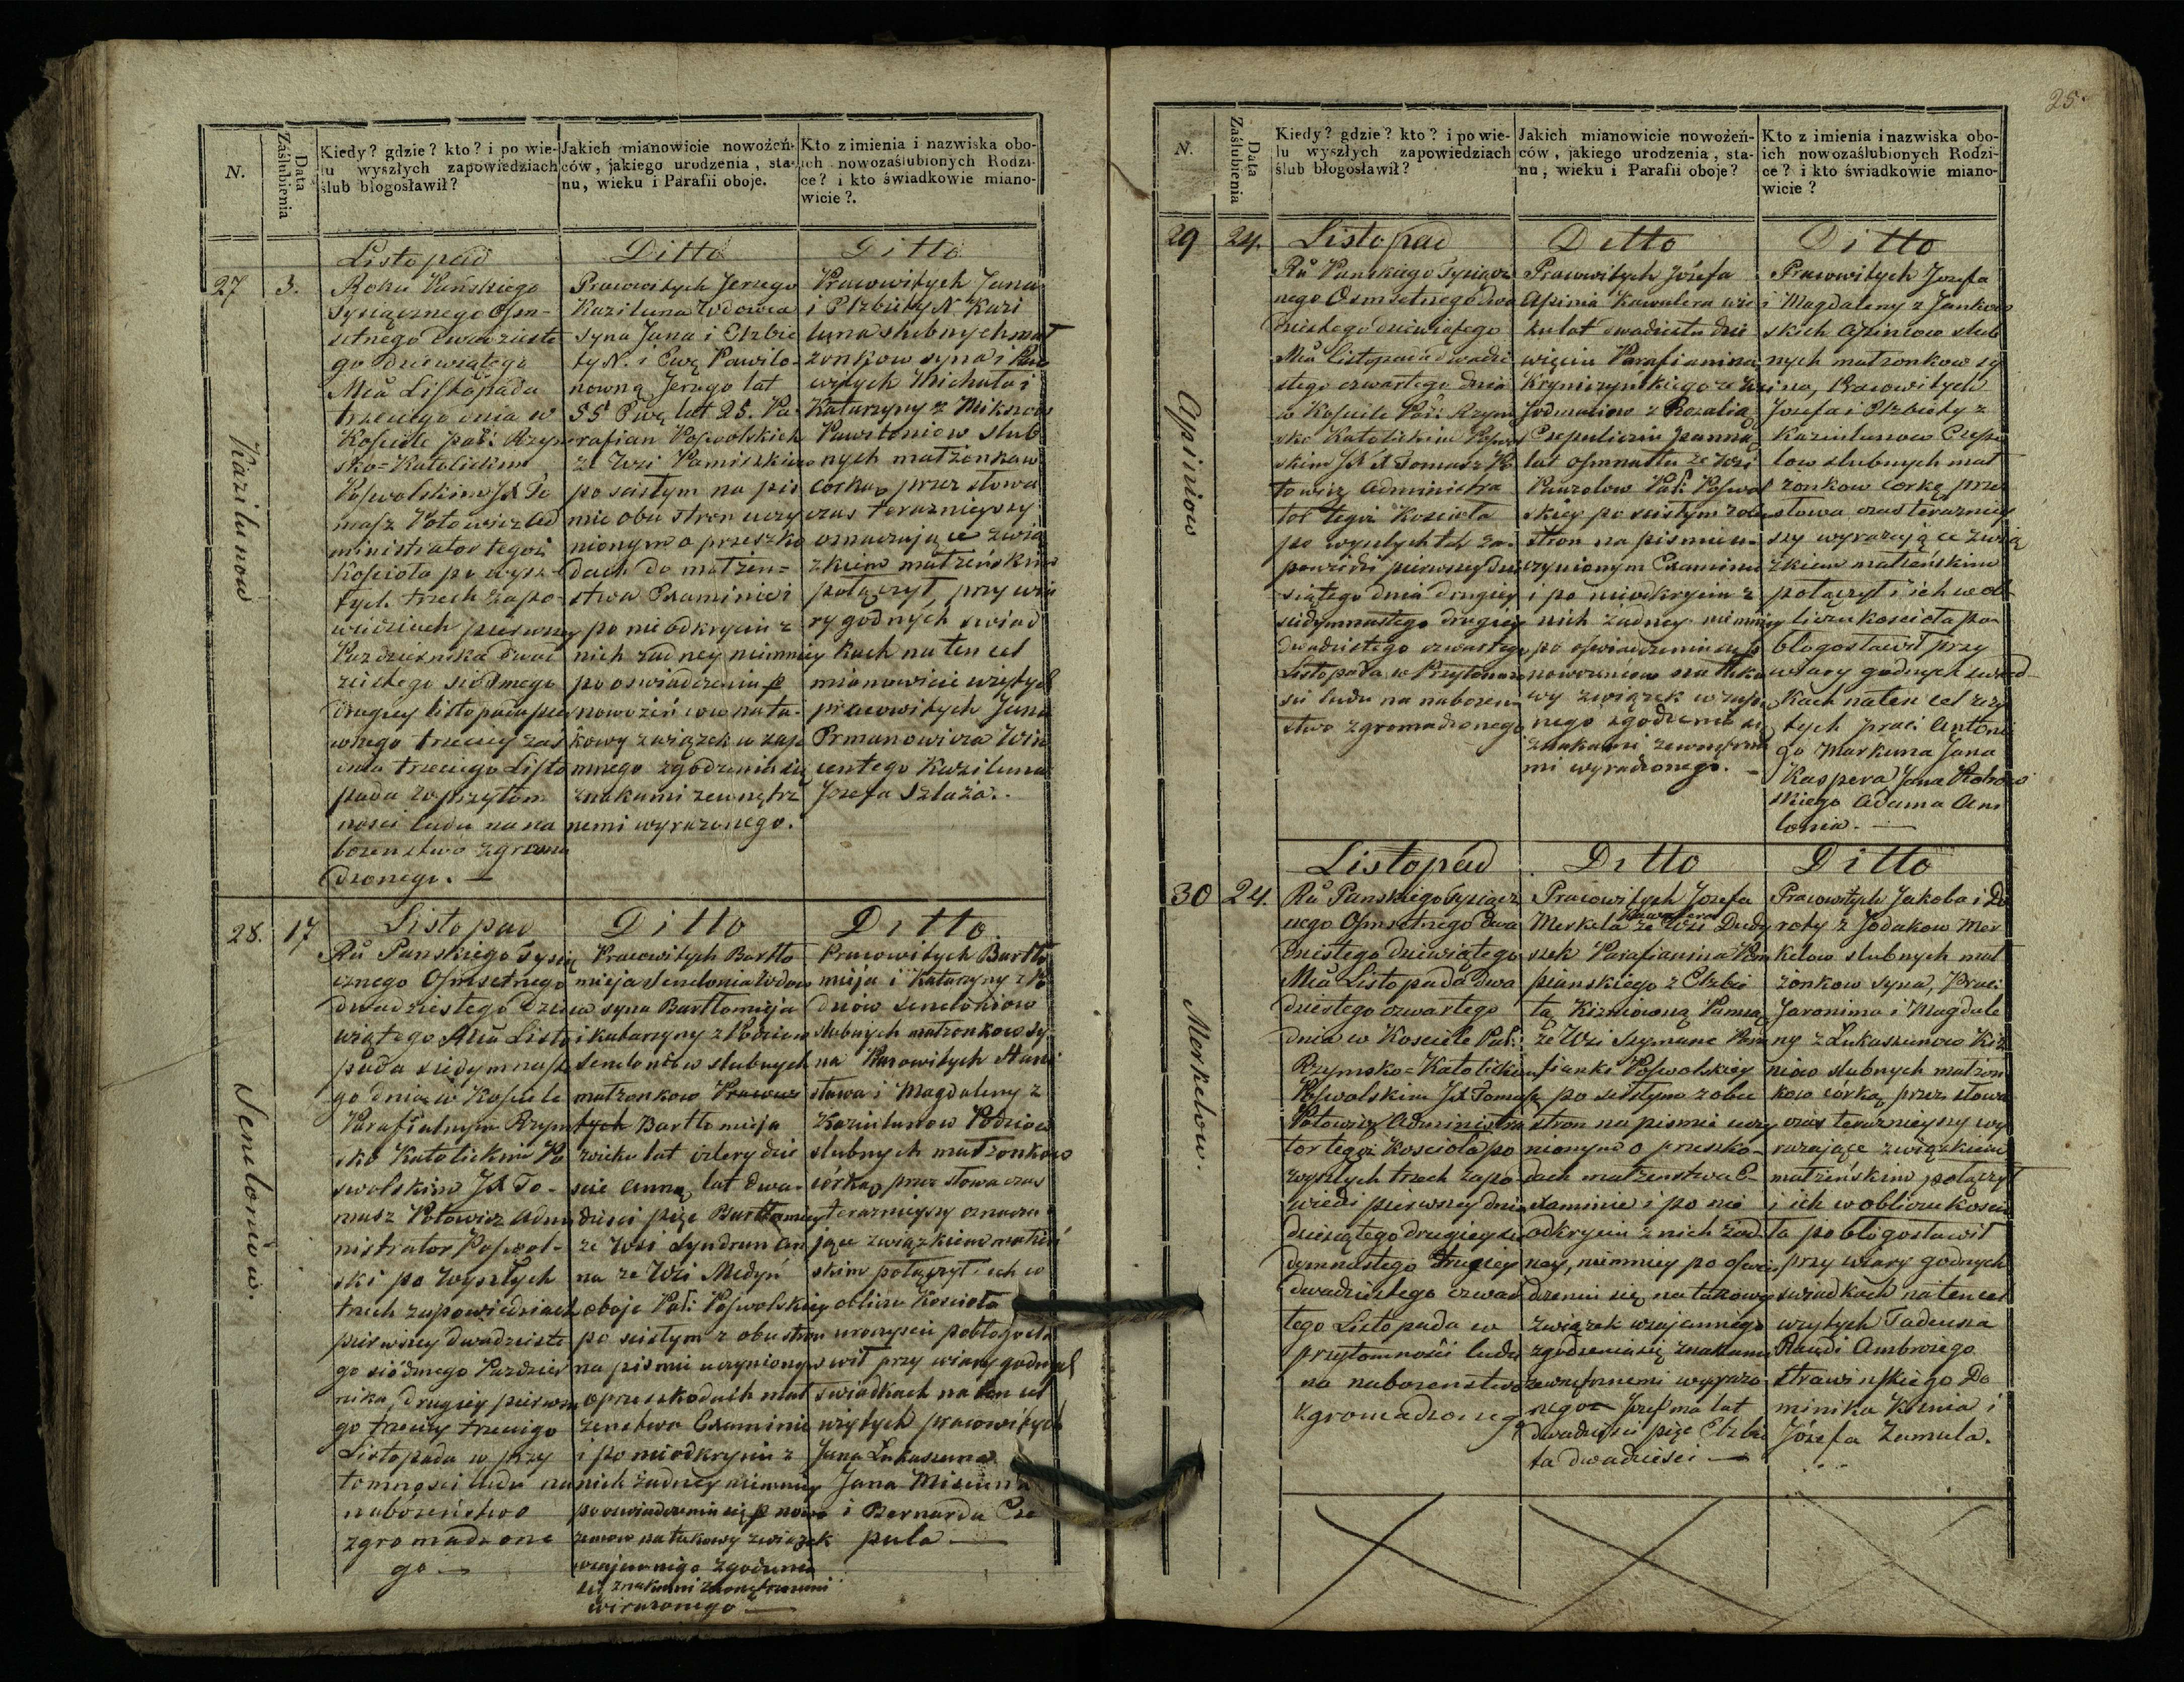 N.
Data
Zaślubienia
Kiedy? gdzie? kto? i po wie-
lu wyszłych zapowiedziach
ślub błogosławił?
Jakich mianowicie nowożeń-
ców, jakiego urodzenia, sta-
nu, wieku i Parafii oboje.
Kto z imienia i nazwiska obo-
ich nowozaślubionych Rodzi-
ce? i kto świadkowie miano-
wicie?.
27
3.
Kazilunow
Listopad
Roku Pańskiego
tysiącznego Ośm-
setnego dwudzieste
go dziewiątego
Mca Listopada
trzeciego dnia w
Kosciele par: Rzym
sko=Katolickim
Poswolskim JX To
masz Potowicz Ad
ministrator tegoż
Kościoła po wysz-
łych trzech zapo-
wiedziach pierwszey
Pazdziernika dwu
dziestego siodmego
drugiey listopada pier
wszego trzeciey zaś
dnia trzeciego Listo
pada w przytom
ności ludu na na
bożenstwo zgroma
dzonego. —
Ditto
Pracowitych Jerzego
Kaziluna Wdowca
syna Jana i Elzbie
ty N. i Ewę Pawilo-
nowną Jerzego lat
55 Ewę lat 25. Pa-
rafian Poswolskich
ze Wsi Pamiszkiun
po scisłym na piś
mie obu stron uczy
nionym o przeszko
dach do małżeń=
stwa Examinie i
po nie odkryciu z
nich żadney niemniey
po oświadczeniu p
nowożeńcow na ta-
kowy związek wzaje
mnego zgodzenia się
znakami zewnętrz
nemi wyrażonego.
Ditto
Pracowitych Jana
i Elzbiety N. Kazi
luna slubnych mał
żonkow syna i Prac
witych Michała i
Katarzyny z Mikszow
Pawiloniow slub
nych małżonkow
corkę, przez słowa
czas teraznieyszy
oznaczające zwią
zkiem małżeńskim
połączył, przy wia
ry godnych swiad
kach na ten cel
mianowicie wziętych
pracowitych Jana
Ermanowicza Win
centego Kaziluna
Jozefa Szlaża.
28.
17
Sendoniow.
Listopad
Ru Panskiego Tysią
cznego Ośmsetnego
dwudziestego dzie
wiątego Mca Listo
pada siedymnaste
go dnia w Kosciele
Parafialnym Rzym
sko Katolickim Po
swolskim JX To-
masz Potowicz Admi
nistrator Poswol-
ski po wyszłych
trzech zapowiedziach
pierwszey dwudzieste
go siódmego Pazdzier
nika, drugiey pierwsze
go trzeciey trzeciego
Listopada w przy
tomnosci ludu na
nabożeństwo
zgromadzone
go —
Ditto
Pracowitych Bartło
mieja Sendonia Wdow
ca syna Bartłomieja
i Katarzyny z Podziow
Sendoniow slubnych
małżonkow Pracowi
tych Bartłomieja
wieku lat cztery dzie
scie Annę lat dwa-
dziesci pięc Bartłomiey
ze Wsi Syndrun An
na ze Wsi Medyń
oboje Par: Poswolskiey
po scisłym z obu stron
na pismie uczynionym
o przeszkodach mał
żenstwa Examinie
i po nieodkryciu z
nich żadney niemniey
po oswiadczeniu się p nowo
żencow na takowy związek
wzajemnego zgodzenia
się znakami zewnętrznemi
wirażonego —
Ditto.
Pracowitych Bartło
mieja i Katarzyny z Po
dziow Sendoniow
slubnych małżonkow sy-
na Pracowitych Stani
sława i Magdaleny z
Kazilunow Podziow
slubnych małżonkow
córkę, przez słowa czas
teraznieyszy oznacza
jące związkiem małżeń
skim połączył i ich w
obliczu Kościoła
uroczyscie pobłogosła
wił przy wiary godnych
swiadkach na ten cel
wziętych pracowitych
Jana Lukaszuna
Jana Misiuna
i Bernarda Cze
pula —
25.
N.
Data
Zaślubienia
Kiedy? gdzie? kto? i po wie-
lu wyszłych zapowiedziach
ślub błogosławił?
Jakich mianowicie nowożeń-
ców, jakiego urodzenia, sta-
nu, wieku i Parafii oboje?
Kto z imienia i nazwiska obo-
ich nowozaślubionych Rodzi-
ce? i kto świadkowie miano-
wicie?
29
24.
Apiniow
Listopad
Ru Panskiego Tysiącz
nego Osmsetnego dwa
dziestego dziewiątego
Mca Listopada dwadzie
stego czwartego dnia
w Kosciele Par: Rzym
sko Katolickim Poswol
skim JX Tomasz Po
towicz Administra
tor tegoż Koscioła
po wyszłych 3ch za-
powiedzi pierwszey dzie
siątego dnia drugiey
siedymnastego drugiey
dwudziestego czwartego
Listopada w Przytomno
sci ludu na nabożen
stwo zgromadzonego
Ditto
Pracowitych Józefa
Apinia Kawalera wie
ku lat dwadziestu dzie
więciu Parafianina
Krynczynskiego ze Wsi
Jodmaniow z Rozalią
Czepulicziu panną
lat osmnastu ze Wsi
Pauzolow Par: Poswol
skiey po scisłym z obu
stron na pismie u-
czynionym Examinie
i po nieodkryciu z
nich żadney niemniey
po oswiadczeniu się p
nowożeńcow na tako
wy związek wzajem
nego zgodzenia się
znakami zewnętrzne
mi wyrażonego. —
Ditto
Pracowitych Jozefa
i Magdaleny z Jankow
skich Apiniow slub
nych małżonkow sy
na, Pracowitych
Jozefa i Elzbiety z
Kazilunow Czepu
low slubnych mał
żonkow corkę przez
słowa czas terazniey
szy wyrażające zwią
zkiem małżeńskim
połączył i ich w ob
liczu kościoła po-
błogosławił przy
wiary godnych swiad-
kach na ten cel wzię
tych praco: Antonie
go Markuna Jana
Kaspera Jana Rohow
skiego Adama An
tonia. —
30
24.
Merkelow.
Listopad
Ru Panskiego Tysiącz
nego Osmsetnego dwa
dziestego dziewiątego
Mca Listopada dwa
dziestego czwartego
dnia w Kosciele Par:
Rzymsko=Katolickim
Poswolskim JX Tomasz
Potowicz Administra
tor tegoż Koscioła po
wyszłych trzech zapo-
wiedzi pierwszey dnia
dziesiątego drugiey sie
dymnastego trzeciey
dwudziestego czwar
tego Listopada w
przytomności ludu
na nabożenstwo
zgromadzoneg
Ditto
Pracowitych Jozefa
Kawalera
Merkela ze Wsi Dudy
szek Parafianina Pom
pianskiego z Elzbie
tą Kizniowną Panną
ze Wsi Szymanc Para
fianki Poswolskiey
po scisłym z obu
stron na pismie uczy
nionym o przeszko-
dach małżenstwa E-
xaminie i po nie
odkryciu z nich żad-
ney, niemniey po oswia
dzeniu się na takowy
związek wzajemnego
zgodzenia się znakami
zewnętrznemi wyrażo
nego — Jozef ma lat
dwadzieści pięc Elzbie
ta dwadziesci —
Ditto
Pracowitych Jakoba i Do
roty z Jodakow Mer
kelow slubnych mał
żonkow syna, Praco:
Jaronima i Magdale
ny z Lukaszunow Kiz
niow slubnych małżon
kow córkę, przez słowa
czas teraznieyszy wy
rażające związkiem
małżeńskim połączył
i ich w obliczu koscio
ła pobłogosławił
przy wiary godnych
swiadkach na ten cel
wziętych Tadeusza
Raudi Ambrożego
Strawinskiego Do
minika Kiznia i
Józefa Zamula.